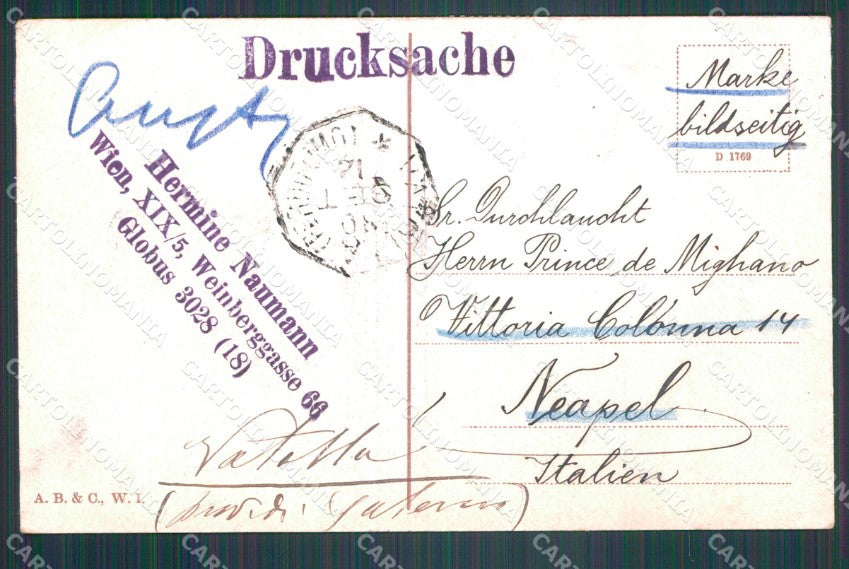 Drucksache
Marke
bildseitig
D 1769
Hermine Naumann
Wien, XIX/5, Weinberggasse 66
Globus 3028 (18)
Sr. Durchlaucht
Herrn Prince de Mighano
Vittoria Colonna 14
Neapel
Italien
A. B. & C., W. I.
CARTOLINOMANIA